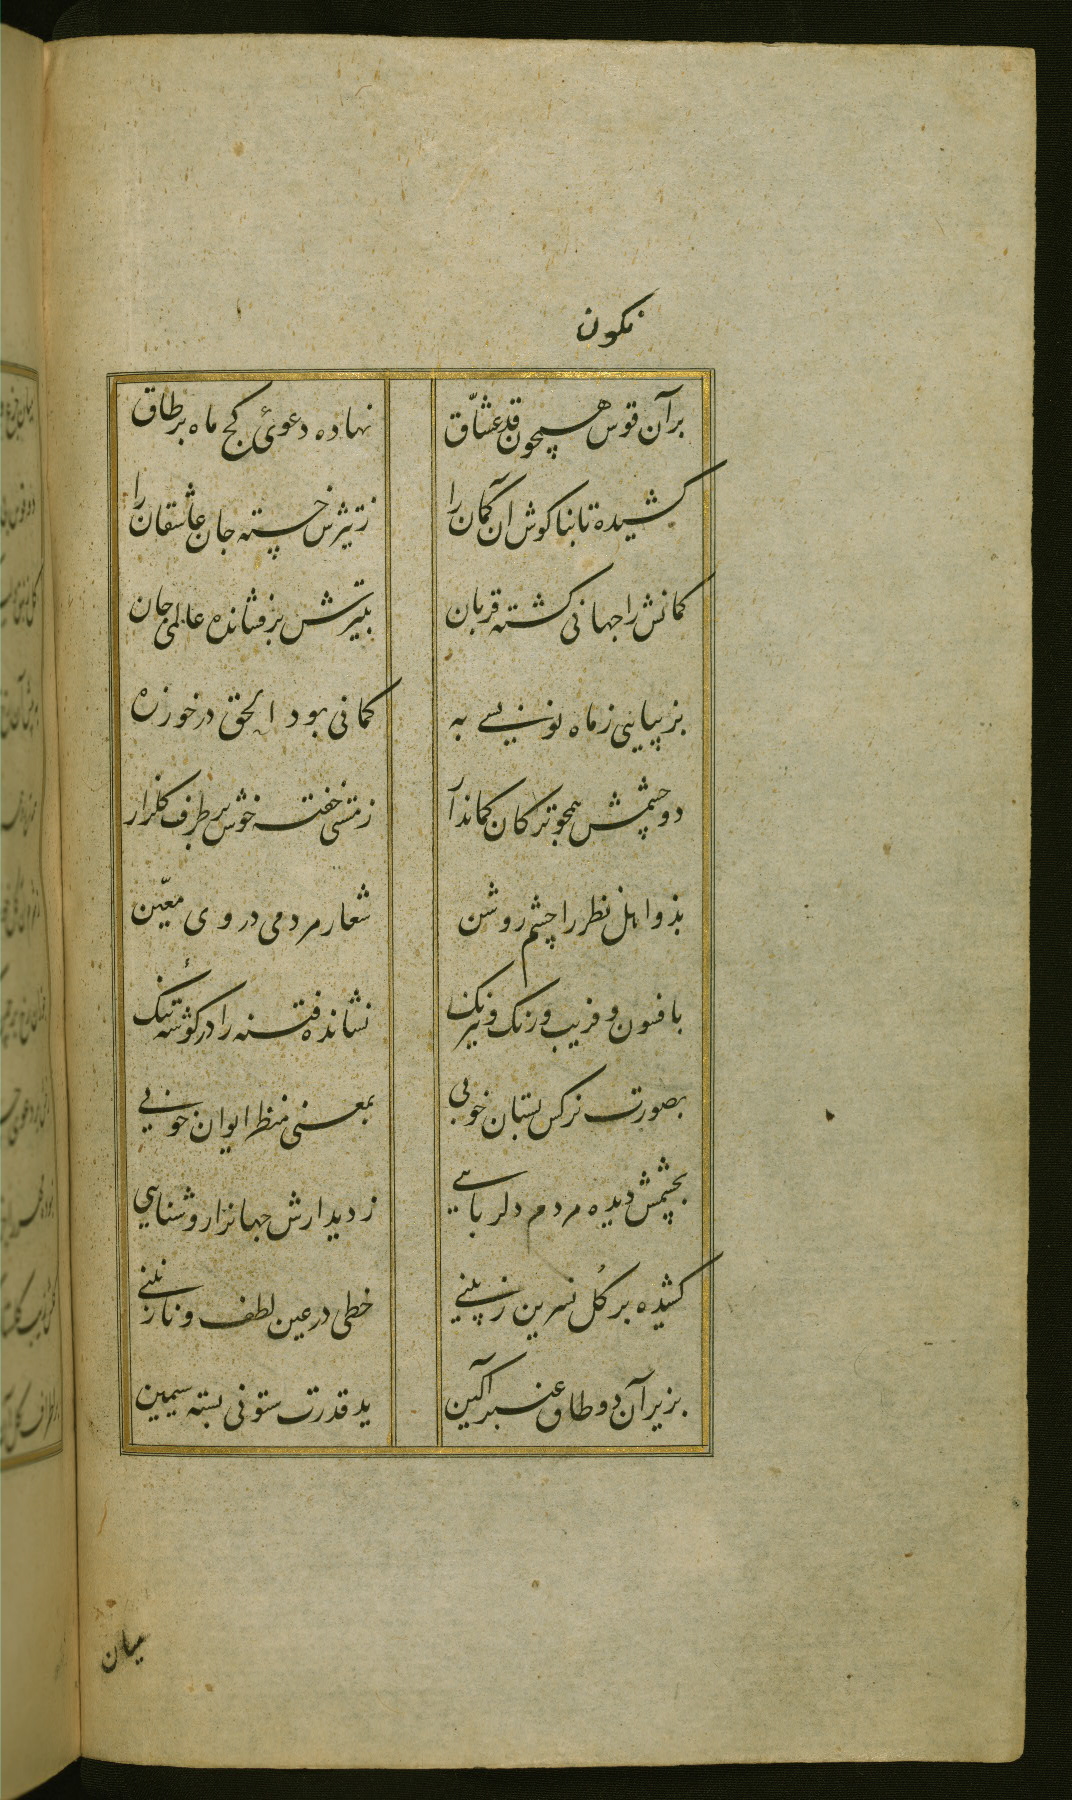 نکون
برآن قوس همچون قد عشّاق
نهاده دعوئ کج ماه بر طاق
کشیده تا بناکوش آن کمان را
ز تیرش خسته جان عاشقان را
کمانش را جهانی کشته قربان
بتیرش برفشانده عالمی جان
بزیبایی ز ماه نو بسی به
کمانی بود الحق درخور زه
دو چشمش همچو ترکان کماندار
ز مستی خفته خوش بر طرف کلزار
بذو اهل نظر را چشم روشن
شعار مردمی در وی معیّن
بافسون و فریب و رنک و نیرنک
نشانده فتنه را در کوشهٔ تنک
بصورت نرکس بستان خوبی
بمعنی منظر ایوان خوبی
بچشمش دیده مردم دلربایی
ز دیدارش جهانرا روشنایی
کشیده بر کُل نسرین ز بینی
خطی در عین لطف و نازنینی
بزیر آن دو طاق عنبرآکین
ید قدرت ستونی بسته سیمین
میان